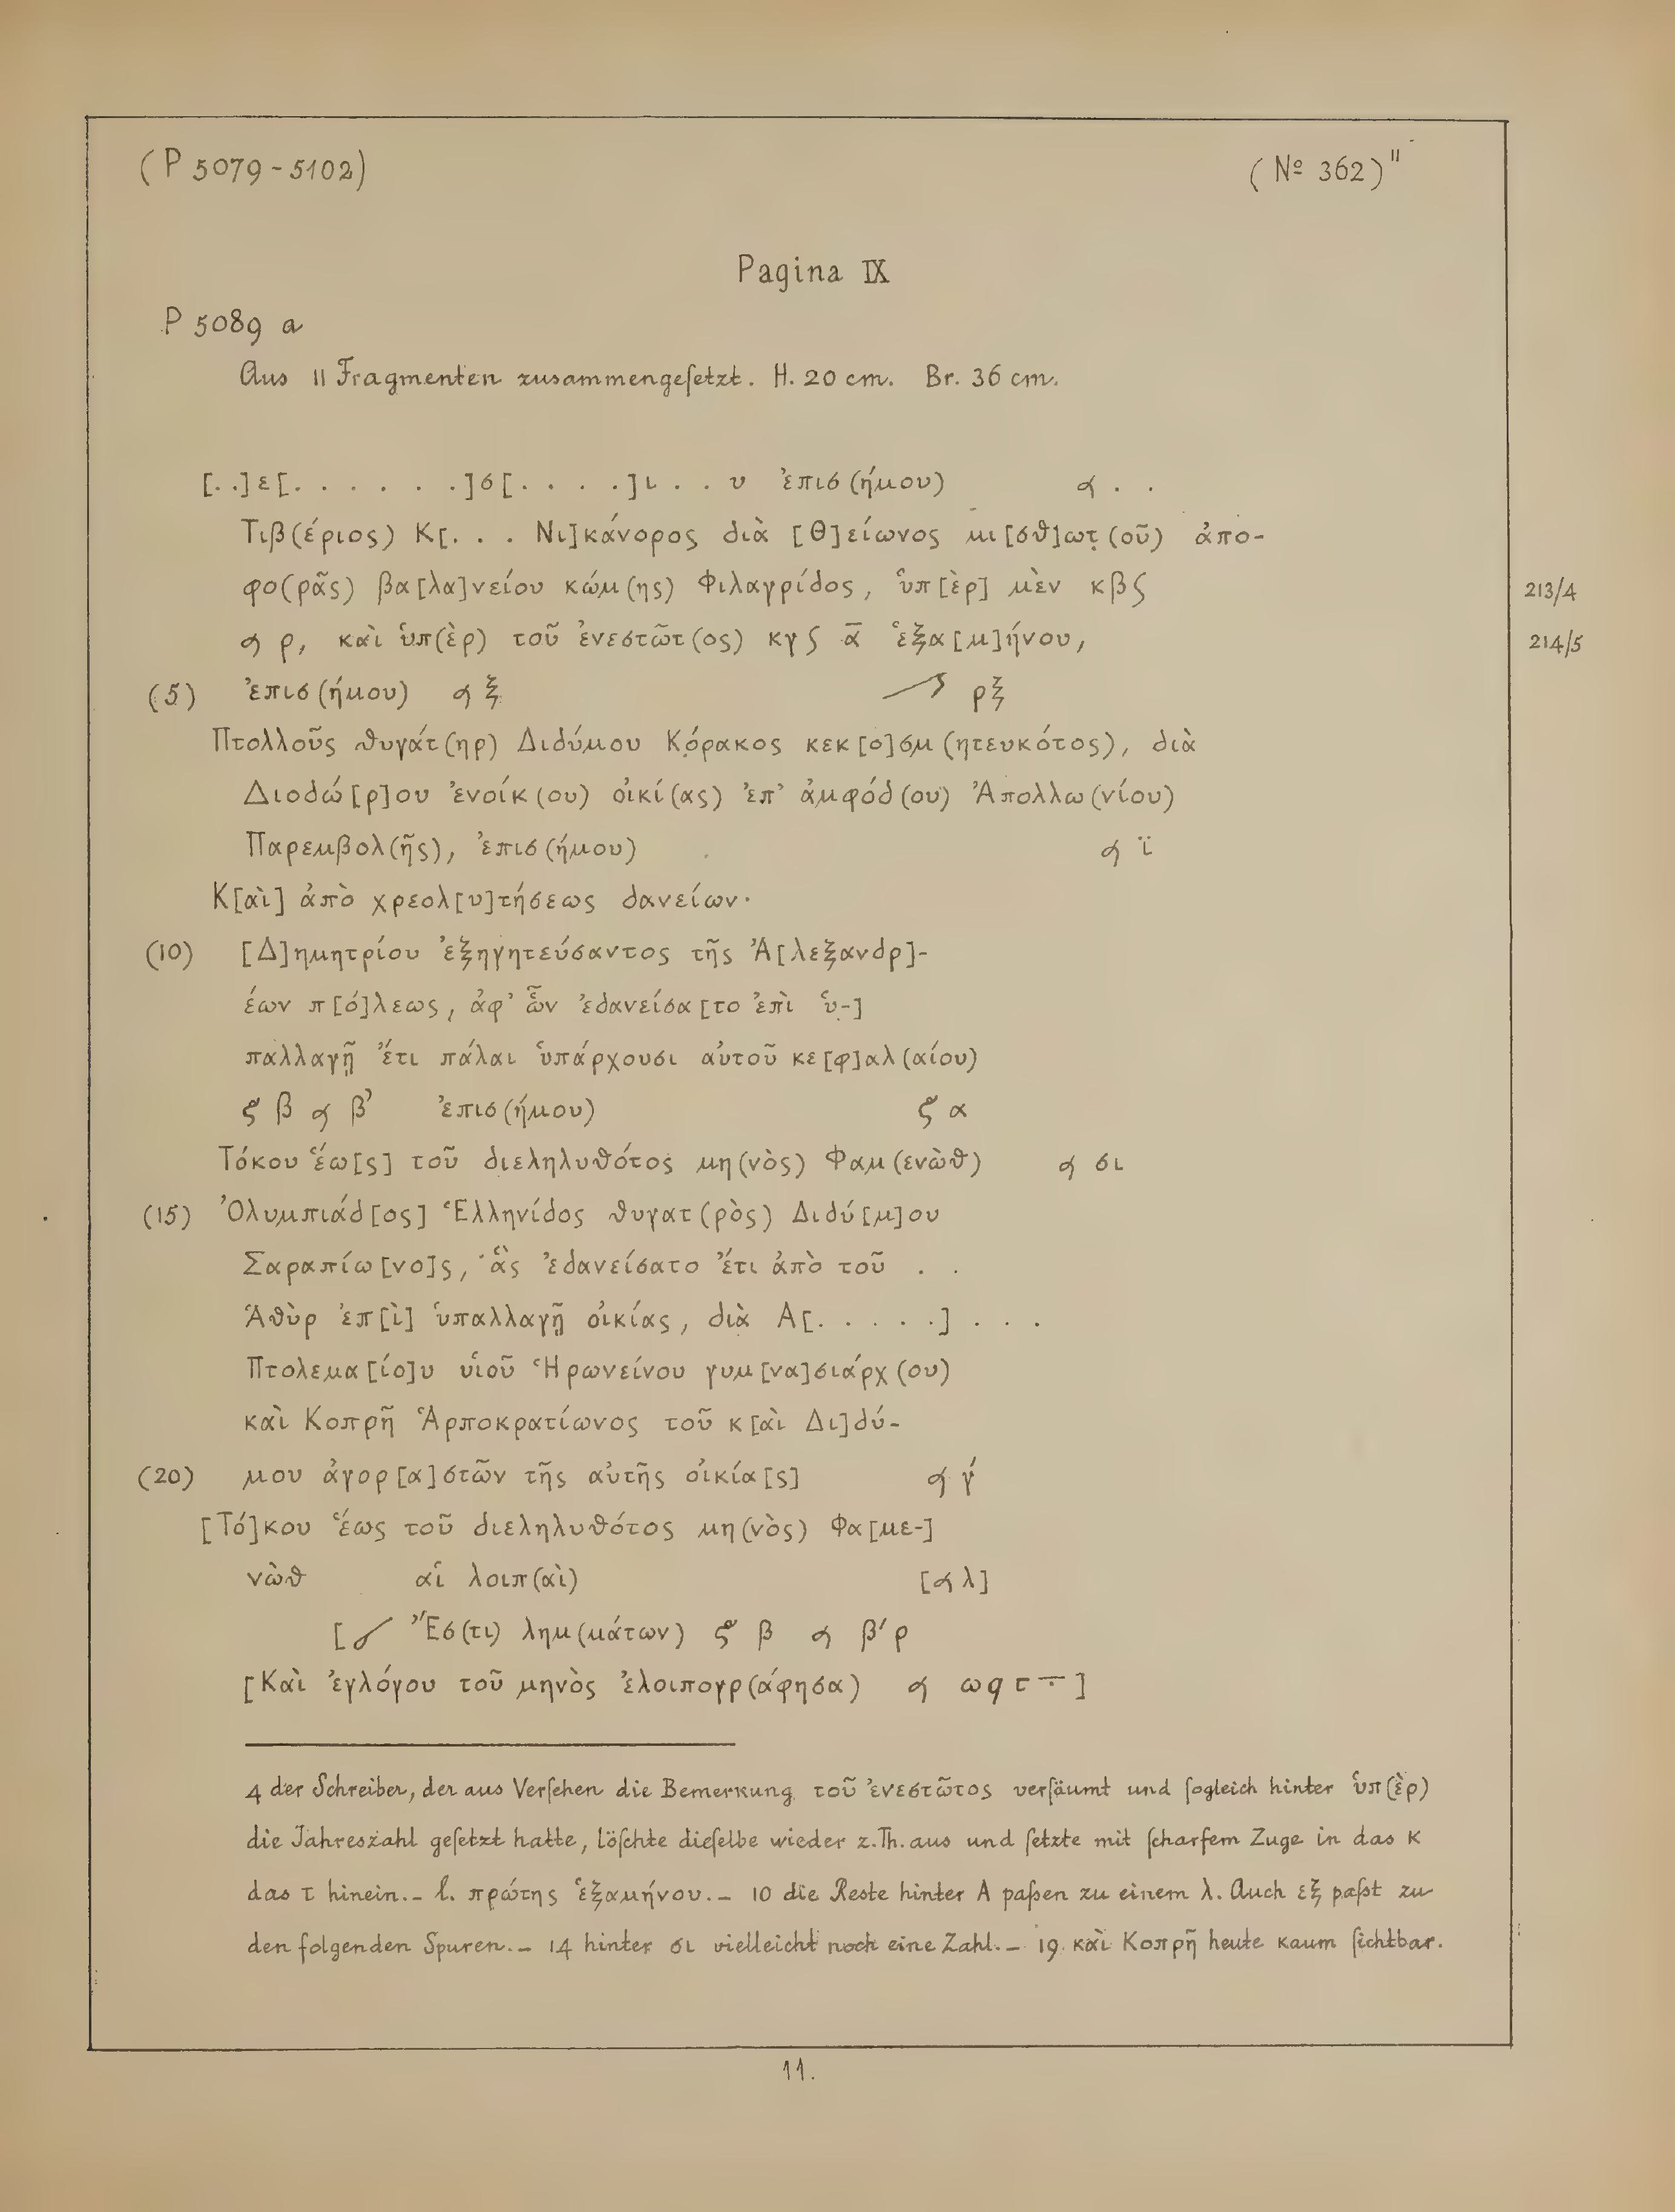 (P 5079-5102) (Nº 362)"
Pagina IX
P 5089 a
Aus 11 Fragmenten zusammengeſetzt. H. 20 cm. Br. 36 cm.
[..]ε[. . . . . . .]σ[. . . . .]ι . . . υ ἐπισ(ήμου) 𐅻 . .
Τιβ(έριος) Κ[. . . Νι]κάνορος διὰ [Θ]είωνος μι[σθ]ωτ̣(οῦ) ἀπο-
φο(ρᾶς) βα[λα]νείου κώμ(ης) Φιλαγρίδος, ὑπ[ὲρ] μὲν κβ 𐅹 213/4
𐅻 ρ, καὶ ὑπ(ὲρ) τοῦ ἐνεστῶτ(ος) κγ 𐅹 ᾱ ἑξα[μ]ήνου, 214/5
(5) ἐπισ(ήμου) 𐅻 ξ ρξ
Πτολλοῦς θυγάτ(ηρ) Διδύμου Κ̣όρακος κεκ[ο]σμ(ητευκότος), διὰ
Διοδώ[ρ]ου ἐνοίκ(ου) οἰκί(ας) ἐπ' ἀμφόδ(ου) Ἀπολλω(νίου)
Παρεμβολ(ῆς), ἐπισ(ήμου) 𐅻 ϊ
Κ[αὶ] ἀπὸ χρεολ[υ]τήσεως δανείων·
(10) [Δ]ημητρίου ἐξηγητεύσαντος τῆς Ἀ[λεξανδρ]-
έων π[ό]λεως, ἀφ' ὧν ἐδανείσα[το ἐπὶ ὑ-]
παλλαγῇ ἔτι πάλαι ὑπάρχουσι αὐτοῦ κε[φ]αλ(αίου)
𐅺 β 𐅻 β' ἐπισ(ήμου) 𐅺 α
Τόκου ἕω[ς] τοῦ διεληλυθότος μη(νὸς) Φαμ(ενὼθ) 𐅻 σι
(15) Ὀλυμπιάδ[ος] Ἑλληνίδος θυγατ(ρὸς) Διδύ[μ]ου
Σαραπίω[νο]ς, ἃς ἐδανείσατο ἔτι ἀπὸ τοῦ . .
Ἁθὺρ ἐπ[ὶ] ὑπαλλαγῇ οἰκίας, διὰ Α[. . . . .] . . .
Πτολεμα[ίο]υ υἱοῦ Ἡρωνείνου γυμ[να]σιάρχ(ου)
καὶ Κοπρῆ Ἁρποκρατίωνος τοῦ κ[αὶ Δι]δύ-
(20) μου ἀγορ[α]στῶν τῆς αὐτῆς οἰκία[ς] 𐅻 γ́
[Τό]κου ἕως τοῦ διεληλυθότος μη(νὸς) Φα[με-]
νὼθ αἱ λοιπ(αὶ) [𐅻 λ]
[ Ἔσ(τι) λημ(μάτων) 𐅺 β 𐅻 β' ρ
[Καὶ ἐγλόγου τοῦ μηνὸς ἐλοιπογρ(άφησα) 𐅻 ωϙ ]
4 der Schreiber, der aus Verſehen die Bemerkung τοῦ ἐνεστῶτος verſäumt und ſogleich hinter ὑπ(ὲρ)
die Jahreszahl geſetzt hatte, löſchte dieſelbe wieder z.Th. aus und ſetzte mit ſcharfem Zuge in das κ
das τ hinein.— l. πρώτης ἑξαμήνου.— 10 die Reste hinter Α paſsen zu einem λ. Auch εξ paſst zu
den folgenden Spuren.— 14 hinter σι vielleicht noch eine Zahl.— 19 καὶ Κοπρῆ heute kaum ſichtbar.
11.